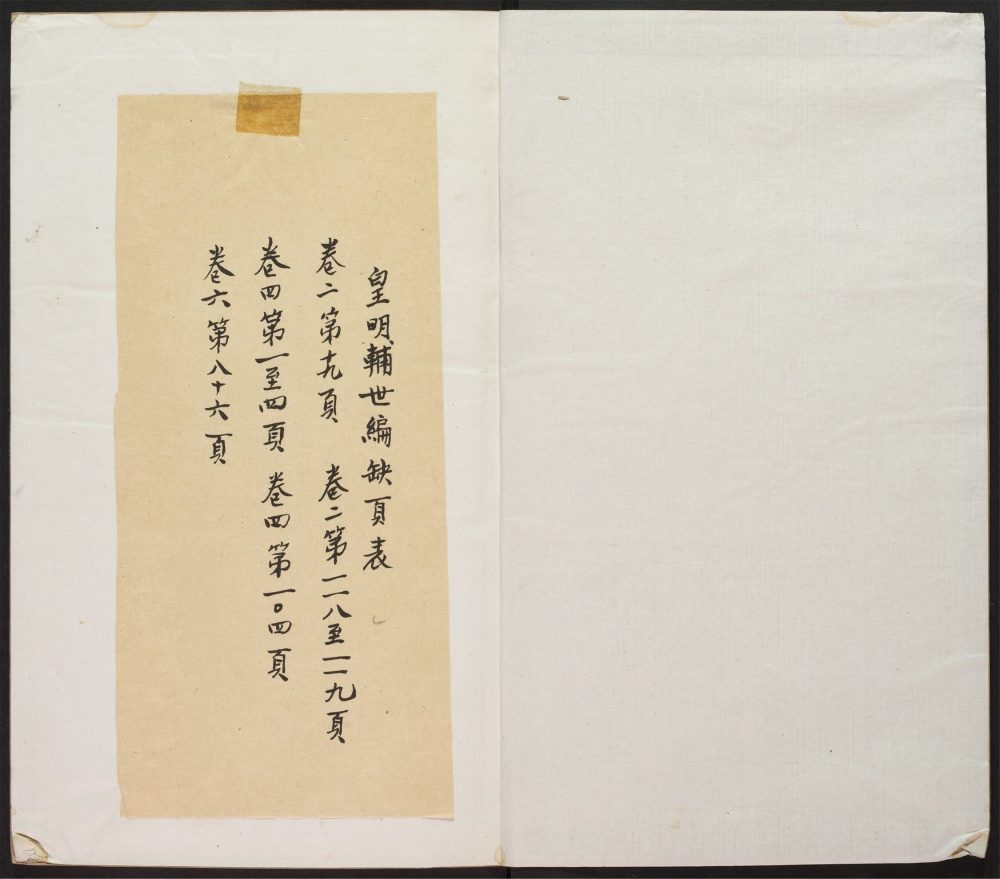 皇明輔世編缺頁表
卷二第十九頁 卷二第一一八至一一九頁
卷四第一至四頁 卷四第一〇四頁
卷六第八十六頁